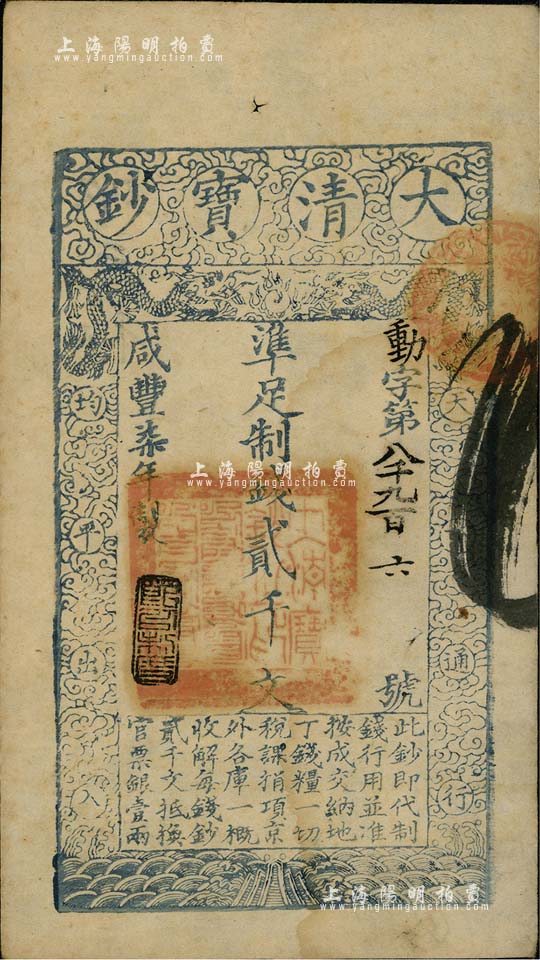 上海陽明拍賣
www.yangmingauction.com
大清寶鈔
天下通行
均平出入
動字第八千九百六號
準足制錢貳千文
咸豐柒年製
上海陽明拍賣
www.yangmingauction.com
此鈔即代制
錢行用並准
按成交納地
丁錢糧一切
稅課捐項京
外各庫一概
收解每錢鈔
貳千文抵換
官票銀壹兩
上海陽明拍賣
www.yangmingauction.com